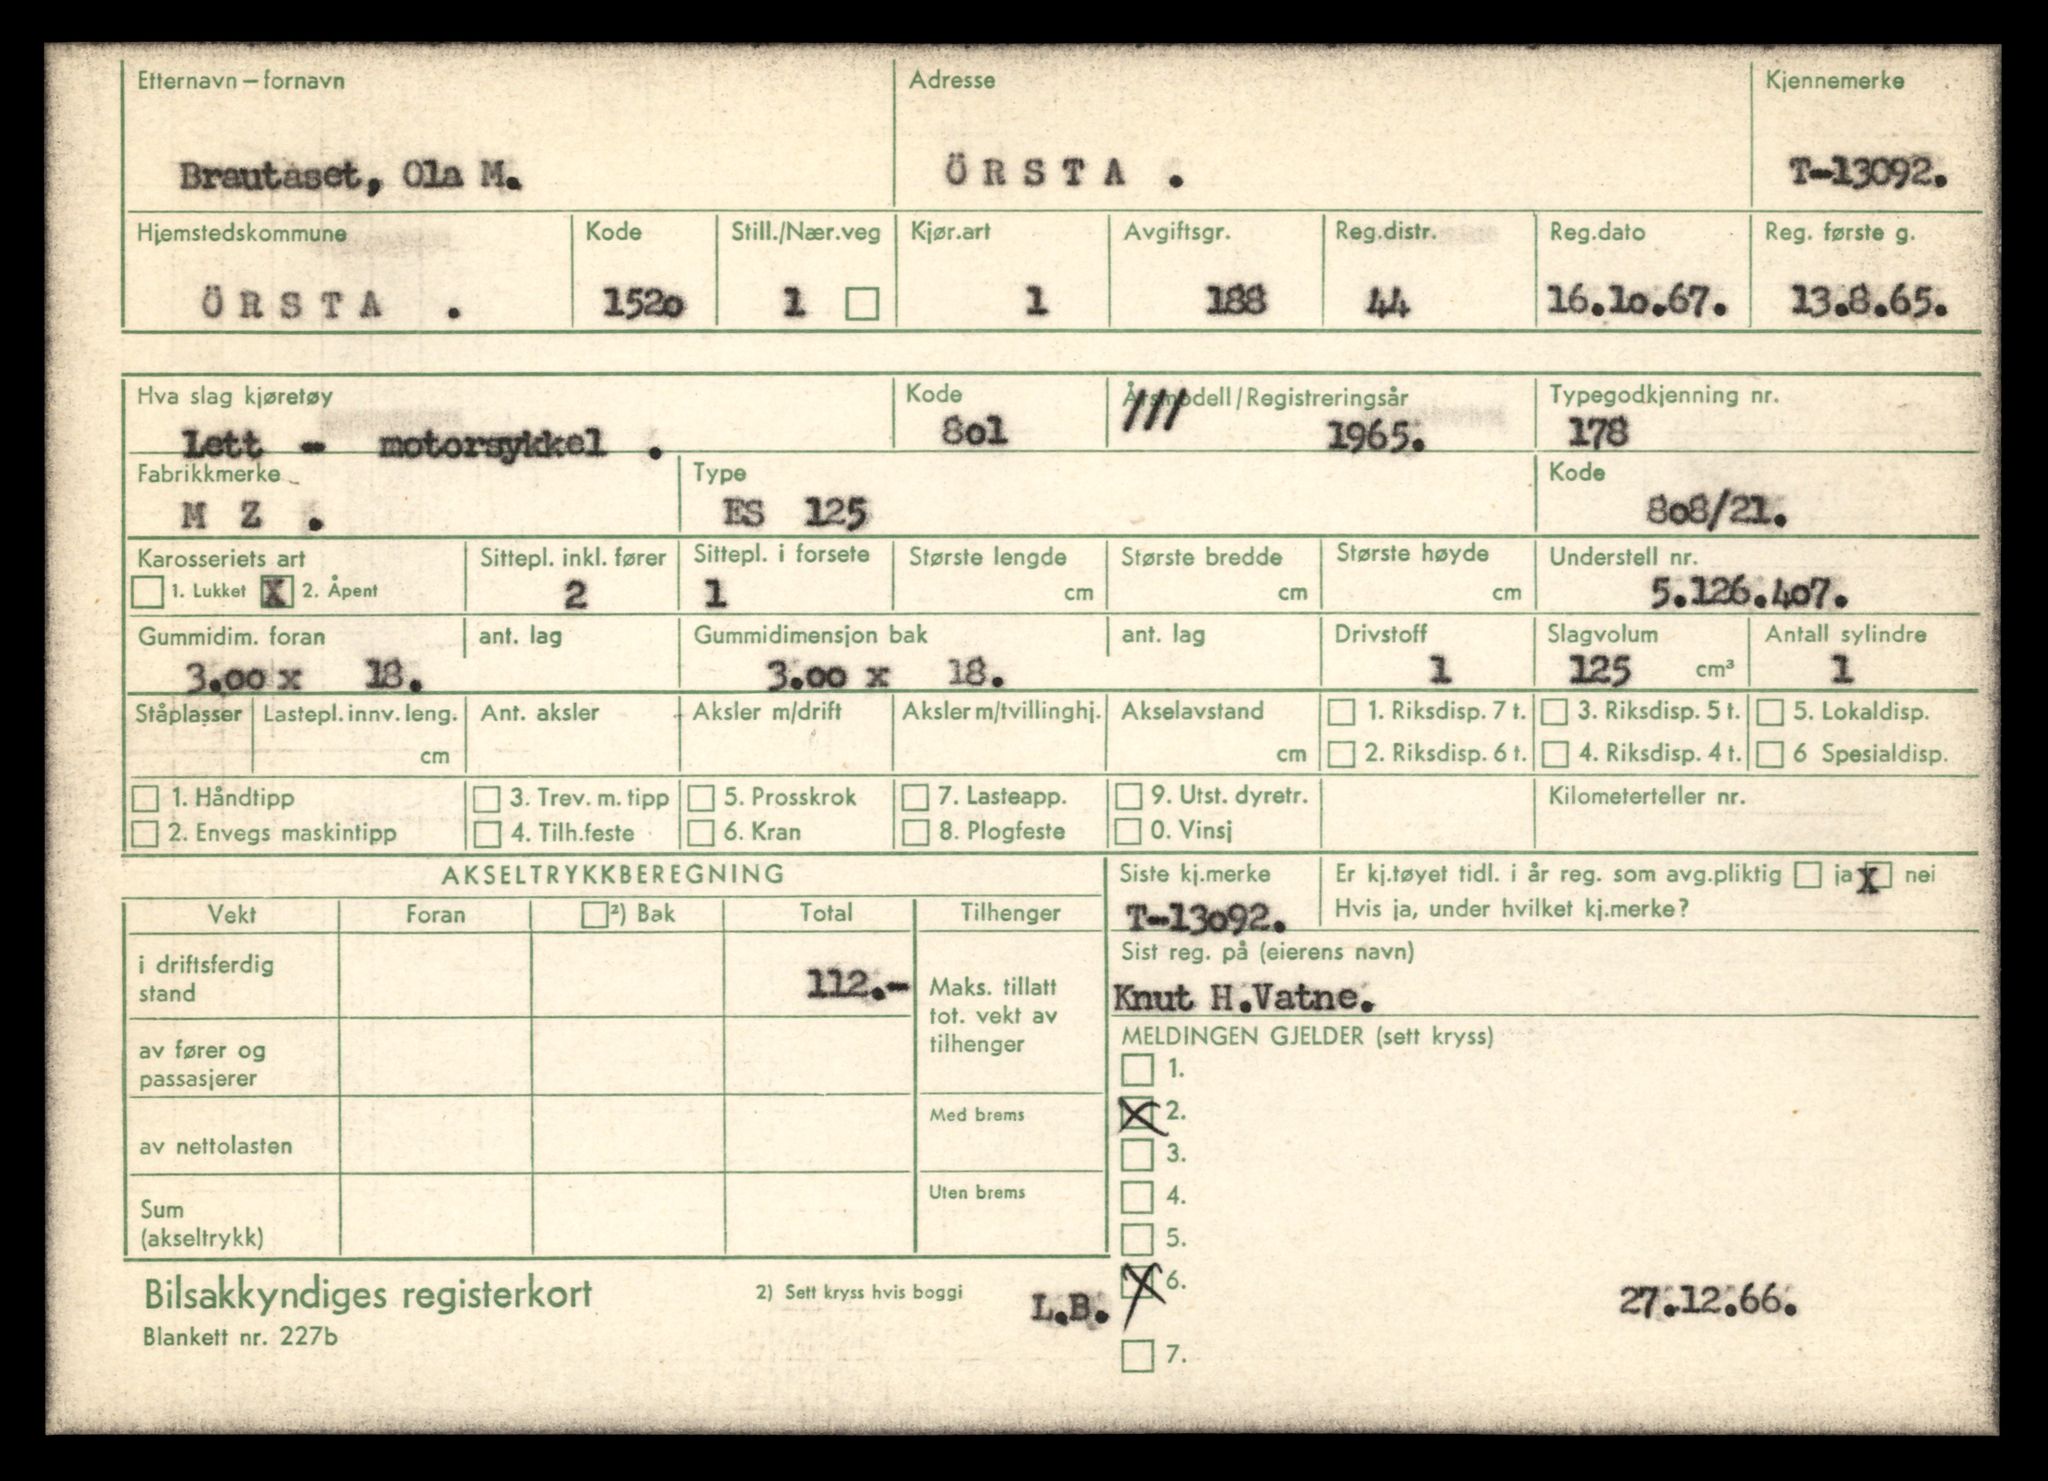 Etternavn – fornavn Adresse Kjennemerke
Brautaset, Ola M. ÖRSTA . T-13092.
Hjemstedskommune Kode Still./Nær.veg Kjør.art Avgiftsgr. Reg.distr. Reg.dato Reg. første g.
ÖRSTA . 152o 1 1 188 44 16.1o.67. 13.8.65.
Hva slag kjøretøy Kode Årsmodell/Registreringsår Typegodkjenning nr.
Lett - motorsykkel . 8o1 /// 1965. 178
Fabrikkmerke Type Kode
M Z . ES 125 8o8/21.
Karosseriets art Sittepl. inkl. fører Sittepl. i forsete Største lengde Største bredde Største høyde Understell nr.
1. Lukket X 2. Åpent 2 1 cm cm cm 5.126.4o7.
Gummidim. foran ant. lag Gummidimensjon bak ant. lag Drivstoff Slagvolum Antall sylindre
3.oo x 18. 3.oo x 18. 1 125 cm³ 1
Ståplasser Lastepl. innv. leng. Ant. aksler Aksler m/drift Aksler m/tvillinghj. Akselavstand 1. Riksdisp. 7 t. 3. Riksdisp. 5 t. 5. Lokaldisp.
cm cm 2. Riksdisp. 6 t. 4. Riksdisp. 4 t. 6 Spesialdisp.
1. Håndtipp 3. Trev. m. tipp 5. Prosskrok 7. Lasteapp. 9. Utst. dyretr. Kilometerteller nr.
2. Envegs maskintipp 4. Tilh.feste 6. Kran 8. Plogfeste 0. Vinsj
AKSELTRYKKBEREGNING Siste kj.merke Er kj.tøyet tidl. i år reg. som avg.pliktig ja X nei
Vekt Foran ²) Bak Total Tilhenger T-13o92. Hvis ja, under hvilket kj.merke?
i driftsferdig stand 112.- Maks. tillatt tot. vekt av tilhenger
Sist reg. på (eierens navn)
Knut H.Vatne.
MELDINGEN GJELDER (sett kryss)
av fører og passasjerer
1.
Med brems X 2.
av nettolasten 3.
Uten brems 4.
Sum (akseltrykk) 5.
Bilsakkyndiges registerkort 2) Sett kryss hvis boggi L.B. X 6. 27.12.66.
Blankett nr. 227b 7.